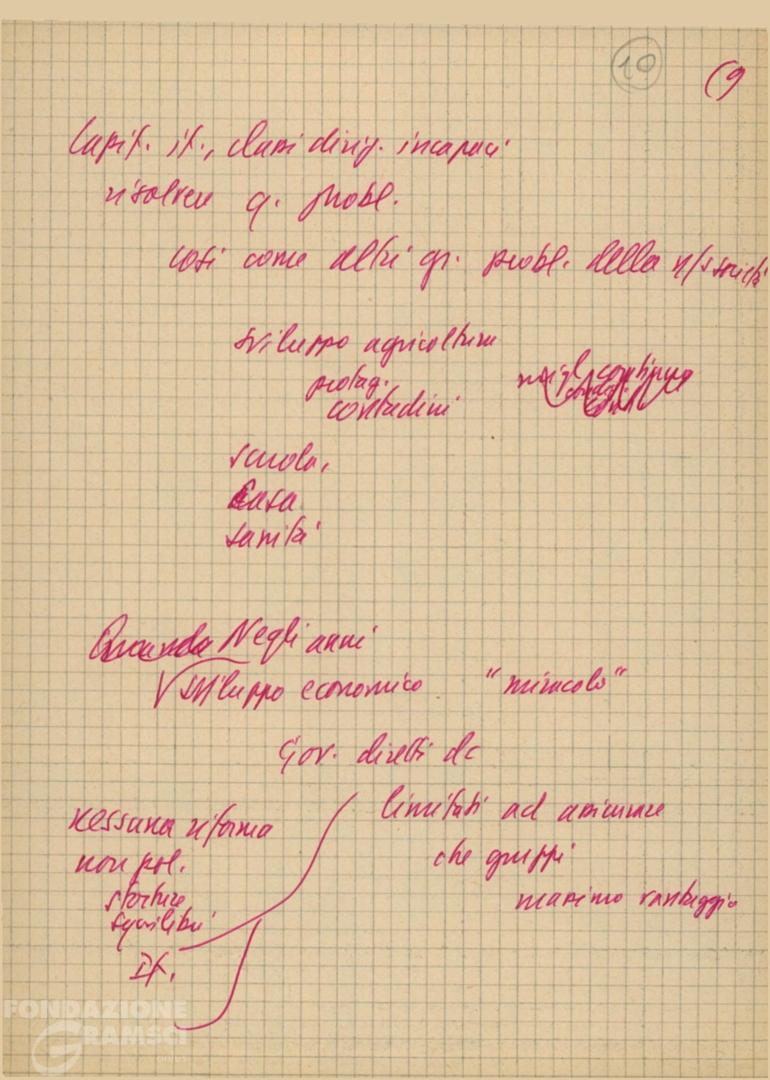 10
(9
Capit. it., classi dirig. incapaci
risolvere q. probl.
così come altri gr. probl. della n/s società
sviluppo agricoltura
protag.
contadini
scuola,
casa
sanità
Quando Negli anni
sviluppo economico "miracolo"
Gov. diretti dc
limitati ad assicurare
che gruppi
massimo vantaggio
nessuna riforma
non pol.
storture
squilibri
It.
FONDAZIONE
GRAMSCI